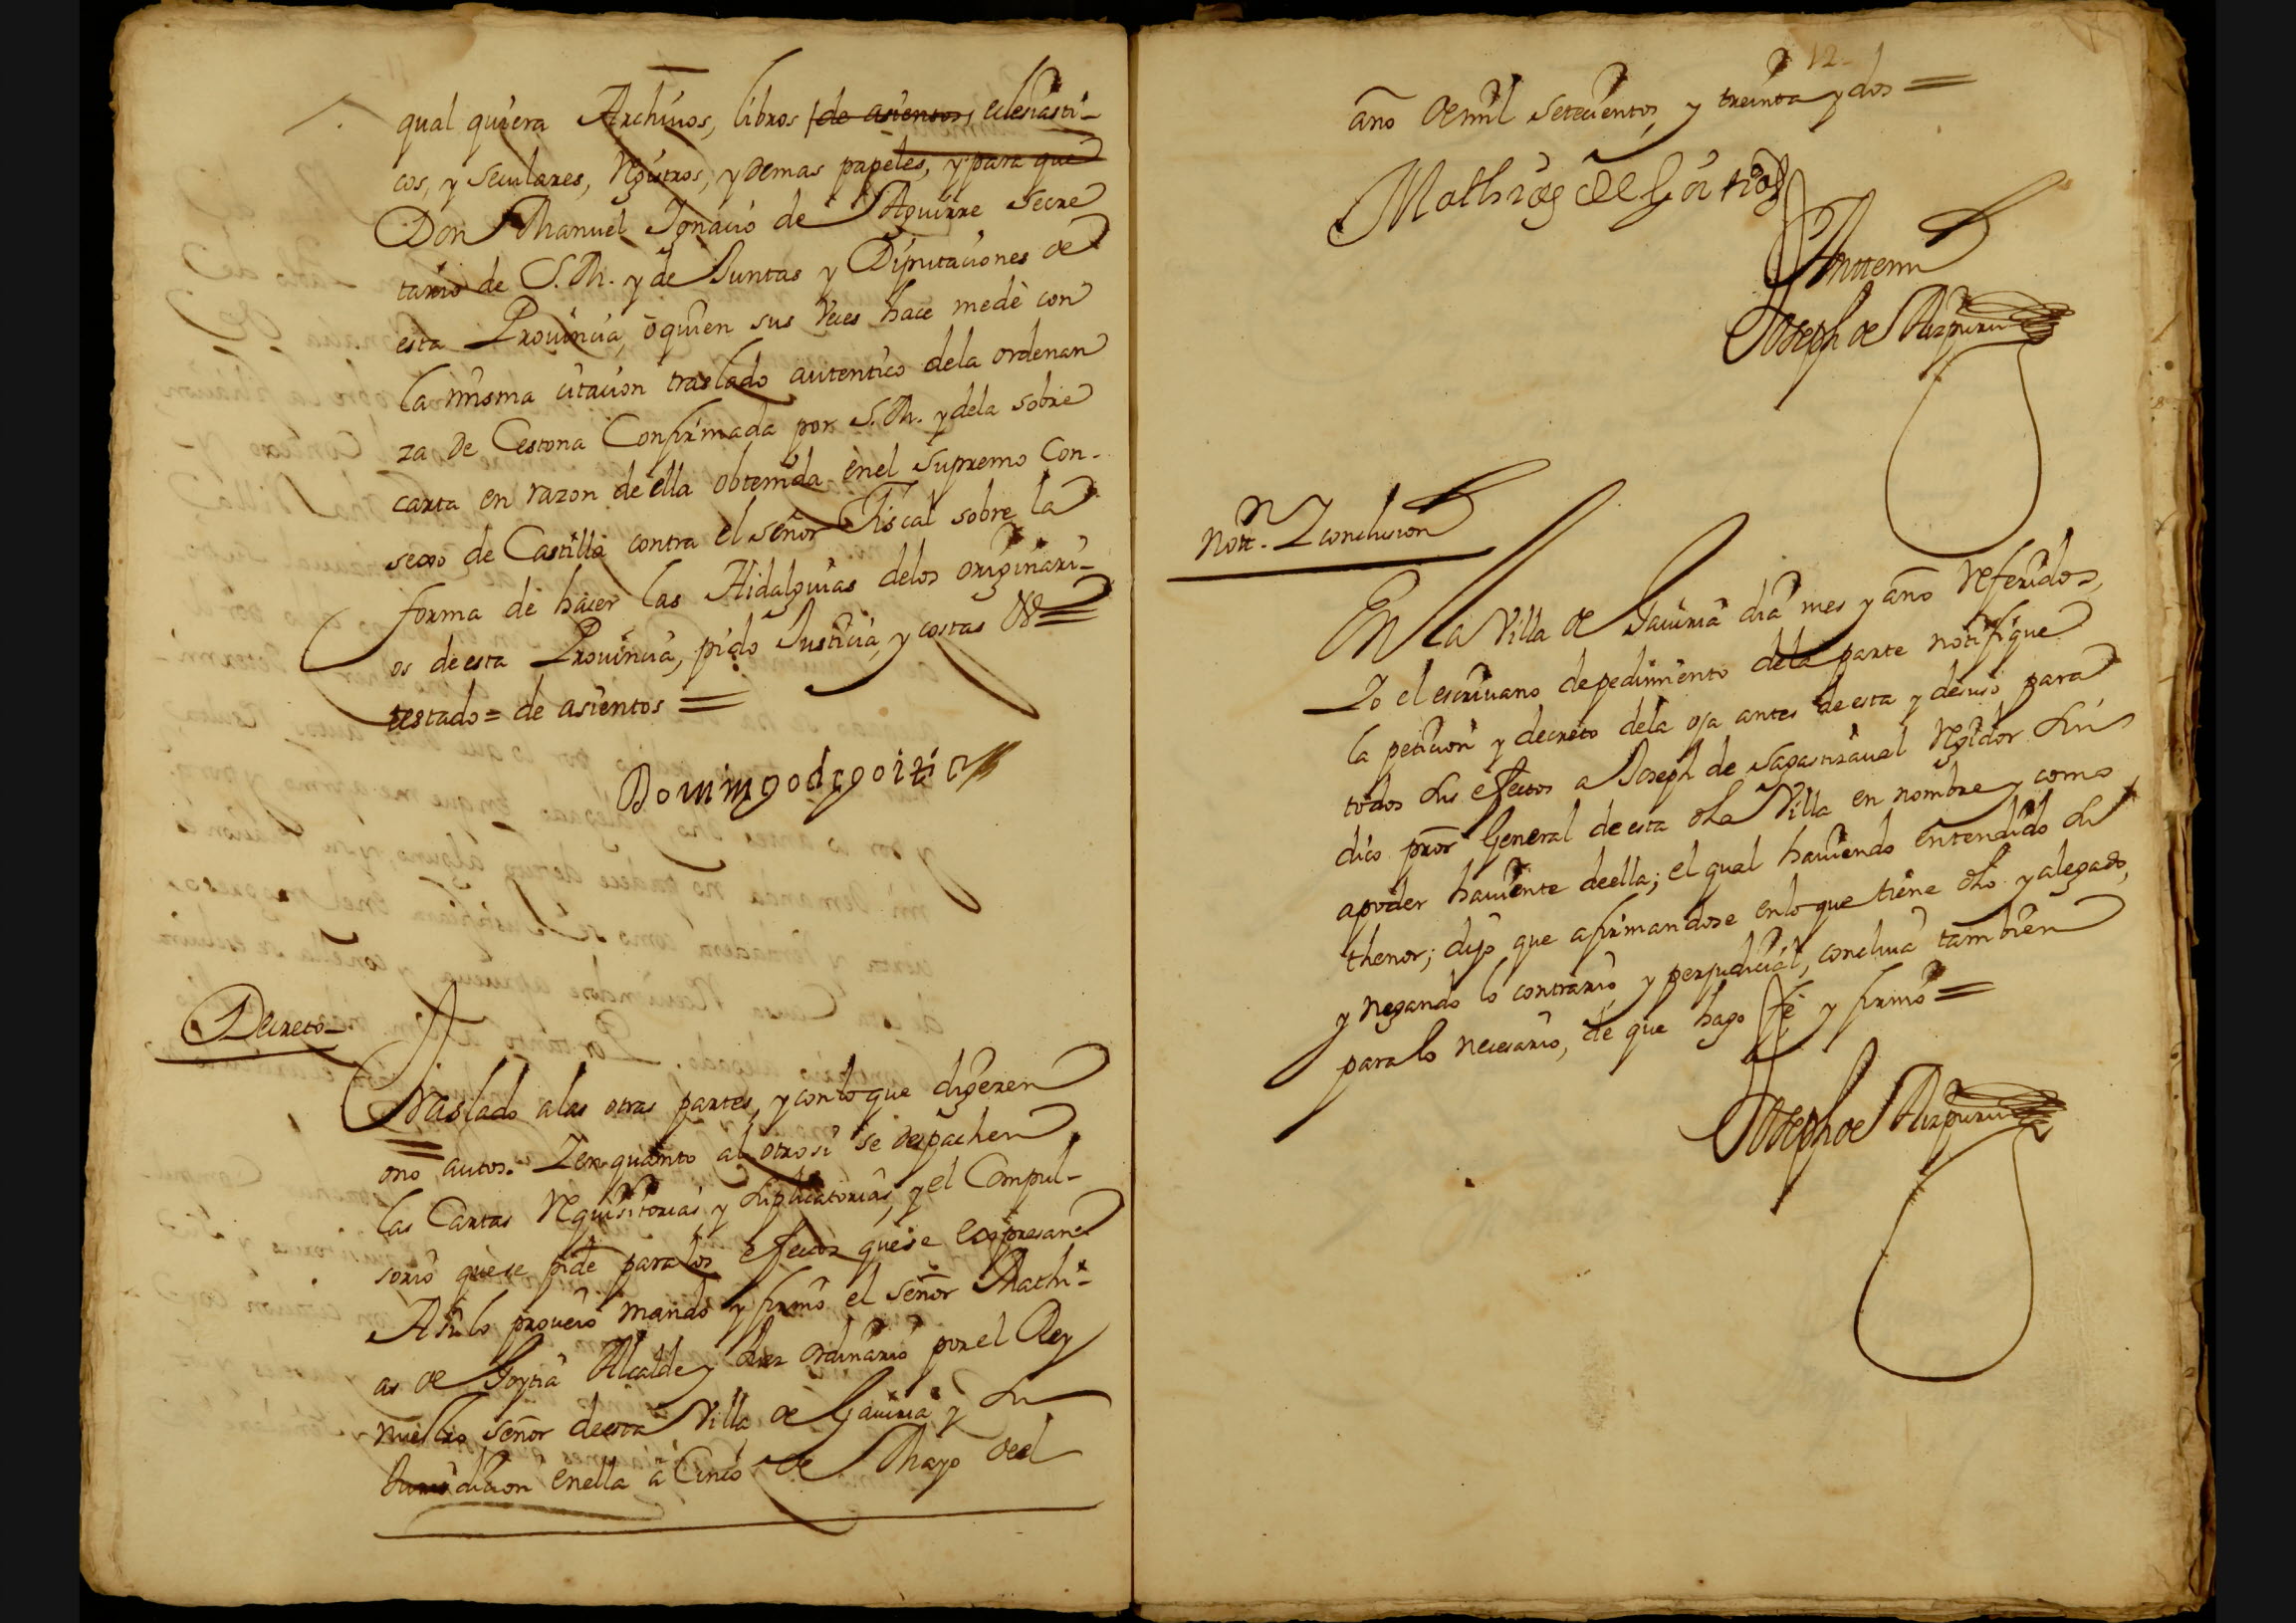 qual quiera Archivos, libros de asientos eclesiasti-
cos, y seculares, Registros, y demas papeles, y para que
Don Manuel Ignacio de Aguirre Secre
tario de S.M. y de Juntas y Diputaciones de
esta Provincia, ò quien sus veces hace me dè con
la misma citacion traslado autentico dela ordenan
za de Cestona Confirmada por S.M. y dela sobre
carta en razon de ella obtenida ènel Supremo Con-
sexo de Castilla contra el señor Fiscal sobre la
forma de hacer las Hidalguias delos originari-
os de esta Provincia, pido Justicia, y costas &ª =
testado = de asientos =
Domingo de goitia
Decreto
Traslado alas otras partes, y con lo que digeren
ono autos. Y en quanto al otrosi se despachen
las Cartas Requisitorias, y suplicatorias, y el Compul-
sorio que se pide para los efectos que se expresan
Asi lo proveio mando y firmò el señor Mathi-
as de Goytia Alcalde y Juez ordinario por el Rey
nuestro señor de esta Villa de Gaviria y su
Jurisdicion en ella a Cinco de Mayo del
12
año de mil setecientos, y treinta y dos =
Mathias de Goitia
Anttemi
Joseph de Aizpuru
Nott.ⁿ Y conclusion
En la Villa de Gaviria dia mes y año referidos,
Yo el escrivano de pedimiento dela parte notifique
la peticion y decreto dela oja antes de esta y de suso para
todos sus efectos a Joseph de Sagastizaval Regidor Sin
dico pror General de esta dha Villa en nombre y como
apoder haviente de ella; el qual haviendo entendido su
thenor; dijo que afirmandose en lo que tiene dho y alegado,
y negando lo contrario, y perjudicial, concluia tambien
para lo necesario, de que hago fè y firmò =
Joseph de Aizpuru